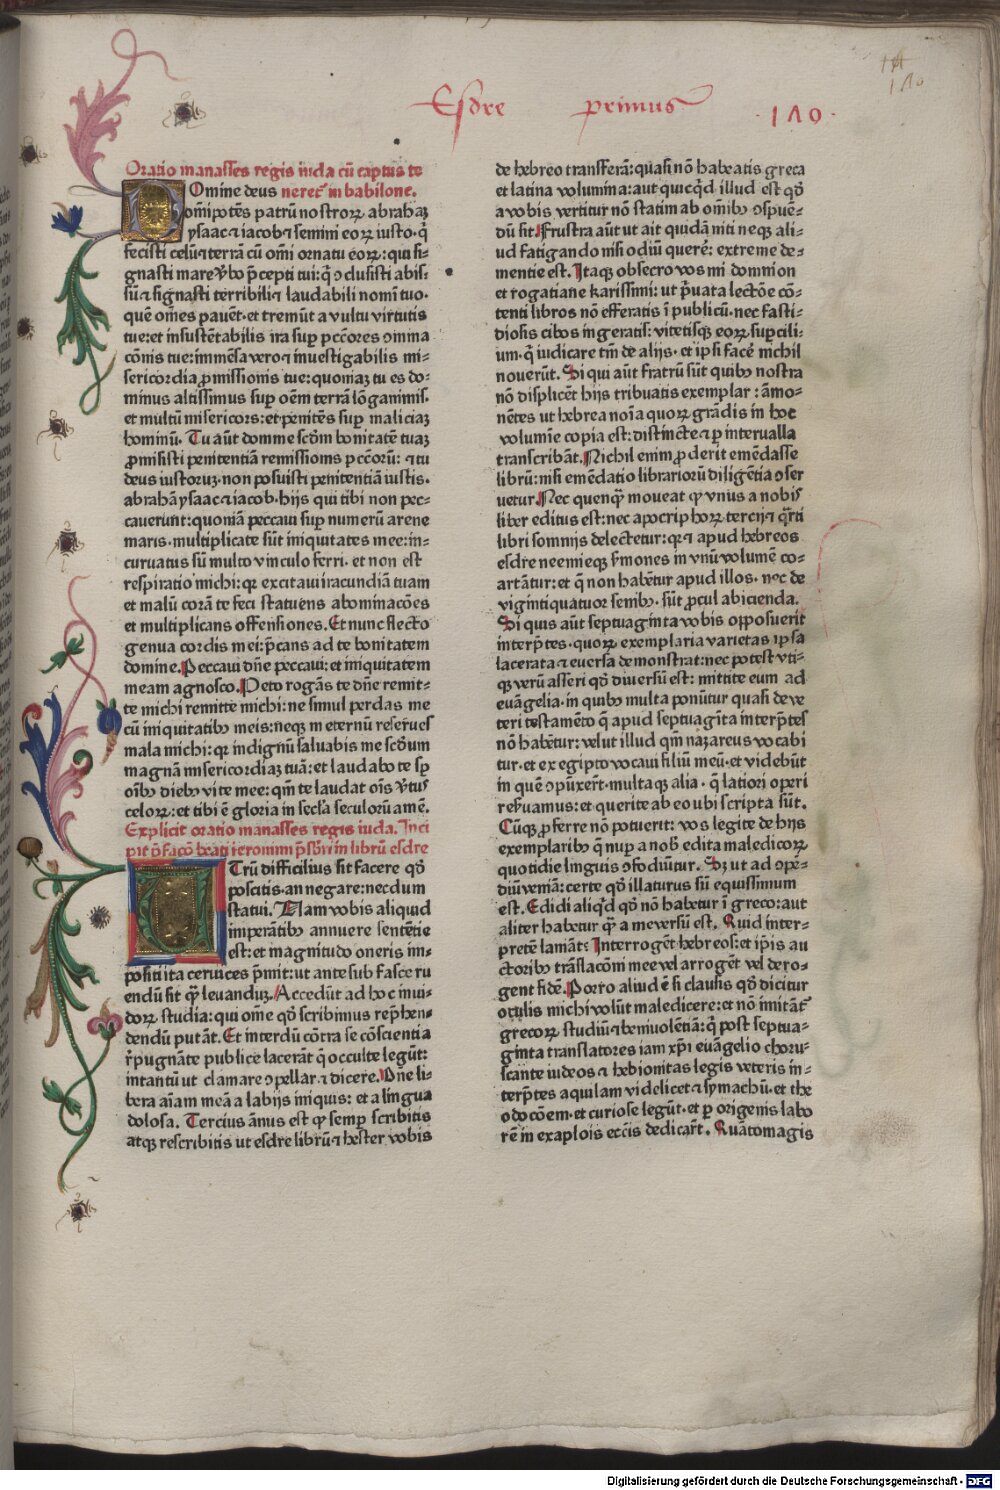 Esdre primus ·110·
110
Oratio manasses regis iuda cū captus te
Domine deus neret᷒ in babilone.
om̄ipotēs patrū nostroꝝ abrahaꝫ
ysaac ⁊ iacob ⁊ semini eoꝝ iusto· q̇
fecisti celū ⁊ terrā cū om̄i ornatu eoꝝ: qui si-
gnasti mare v̓bo p̄cepti tui: q̇ ꝯclusisti abis-
sū ⁊ signasti terribili ⁊ laudabili nomī tuo·
quē om̄es pauēt· et tremūt a vultu virtutis
tue: et insustētabilis ira suꝑ pc̄cōres ꝯmina
cōnis tue: immēsa vero ⁊ inuestigabilis mi-
sericordia ꝓmissionis tue: quoniaꝫ tu es do-
minus altissimus suꝑ om̄em terrā lōganimis·
et multū misericors: et penitēs suꝑ maliciaꝫ
hominū. Tu aūt domine scd̄m bonitatē tuaꝫ
ꝓmisisti penitentiā remissionis pc̄cōrū: ⁊ tu
deus iustoruꝫ· non posuisti penitentiā iustis·
abrahā ysaac ⁊ iacob· hijs qui tibi non pec-
cauerunt: quoniā peccaui suꝑ numerū arene
maris· multiplicate sūt iniquitates mee: in-
curuatus sū multo vinculo ferri· et non est
respiratio michi: qꝛ excitaui iracundiā tuam
et malū corā te feci statuens abominacōes
et multiplicans offensiones. Et nunc flecto
genua cordis mei: p̄cans ad te bonitatem
domine. Peccaui dn̄e peccaui: et iniquitatem
meam agnosco. Peto rogās te dn̄e remit-
te michi remitte michi: ne simul perdas me
cū iniquitatibꝰ meis: neqꝫ in eternū reserues
mala michi: qꝛ indignū saluabis me scd̄um
magnā misericordiaꝫ tuā: et laudabo te sp̄
oībꝰ diebꝰ vite mee: qm̄ te laudat oīs v̓tus
celoꝝ: et tibi ē gloria in secl̄a seculorū amē.
Explicit oratio manasses regis iuda. Inci
pit p̄facō beati ieronimi p̄sbri in librū esdre
UTrū difficilius sit facere qd̄
poscitis· an negare: necdum
statui. Nam vobis aliquid
imperātibꝰ annuere sentētie
est: et magnitudo oneris im-
positi ita ceruices p̄mit: ut ante sub fasce ru
endū sit qꝫ leuanduꝫ. Accedūt ad hoc inui-
doꝝ studia: qui om̄e qd̄ scribimus rep̄hen-
dendū putāt. Et interdū cōtra se cōscientia
r̄pugnāte publice lacerāt q̇ occulte legūt:
intantū ut clamare ꝯpellar ⁊ dicere. Dn̄e li-
bera aīam meā a labijs iniquis: et a lingua
dolosa. Tercius ānus est qꝫ semꝑ scribitis
atqꝫ rescribitis ut esdre librū ⁊ hester vobis
de hebreo transferā: quasi nō habeatis greca
et latina volumina: aut quicq̄d illud est qd̄
a vobis vertitur nō statim ab om̄ibꝰ ꝯspuē-
dū sit. Frustra aūt ut ait quidā niti neqꝫ ali-
ud fatigando nisi odiū querer̄: extreme de-
mentie est. Itaqꝫ obsecro vos mi domnion
et rogatiane karissimi: ut p̄uata lectōe cō-
tenti libros nō efferatis ī publicū· nec fasti-
diosis cibos ingeratis: vitetisqꝫ eoꝝ suꝑcili-
um· q̇ iudicare tm̄ de alijs· et ipsi facer̄ nichil
nouerūt. Si qui aūt fratrū sūt quibꝰ nostra
nō displicēt hijs tribuatis exemplar: āmo-
nētes ut hebrea noīa quoꝝ grādis in hoc
volumīe copia est: distincte ⁊ ꝑ interualla
transcribāt. Nichil enim ꝓderit emēdasse
librū: nisi emēdatio librariorū diligētia ꝯser
uetur. Nec quenqꝫ moueat qꝫ vnus a nobis
liber editus est: nec apocriphoꝝ tercij ⁊ q̄rti
libri somnijs delectetur: qꝛ ⁊ apud hebreos
esdre neemieqꝫ s̓mones in vnū volumē co-
artātur: et q̄ non habētur apud illos· nec de
vigintiquatuor senibꝰ· sūt ꝓcul abicienda.
Si quis aūt septuaginta vobis opposuerit
interp̄tes· quoꝝ exemplaria varietas ipsa
lacerata ⁊ euersa demonstrat: nec potest vti-
qꝫ verū asseri qd̄ diuersū est: mittite eum ad
euāgelia· in quibꝰ multa ponūtur quasi de ve
teri testamēto q̄ apud septuagīta interp̄tes
nō habētur: velut illud qm̄ nazareus vocabi
tur· et ex egipto vocaui filiū meū· et videbūt
in quē ꝯpūxer̄t· multaqꝫ alia· q̄ latiori operi
res̓uamus: et querite ab eo ubi scripta sūt.
Cūqꝫ ꝓferre nō potuerit: vos legite de hijs
exemplaribꝰ q̄ nuꝑ a nob̓ edita maledicoꝝ
quotidie linguis ꝯfodiūtur. Sꝫ ut ad ꝯpē-
diū veniā: certe qd̄ illaturus sū equissimum
est. Edidi aliq̇d qd̄ nō habetur ī greco: aut
aliter habetur qꝫ a me versū est. Quid inter-
pretē laniāt: Interrogēt hebreos: et ip̄is au
ctoribꝰ trāslacōni mee vel arrogēt vel dero-
gent fidē. Porro aliud ē si clausis qd̄ dicitur
oculis michi volūt maledicere: et nō imitāt᷒
grecoꝝ studiū ⁊ beniuolētiā: q̇ post septua-
ginta translatores iam xp̄i euāgelio choru-
scante iudeos ⁊ hebionitas legis veteris in-
terp̄tes aquilam videlicet ⁊ symachū· et the
odocōem· et curiose legūt· et ꝑ origenis labo
rē in exaplois ecc̄is dedicar̄t. Quātomagis
Digitalisierung gefördert durch die Deutsche Forschungsgemeinschaft - DFG